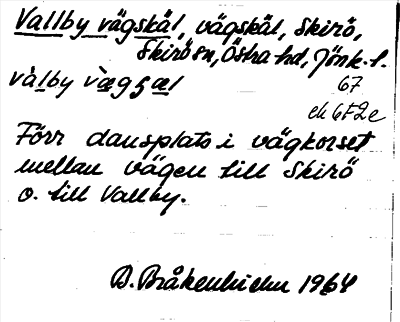 Vallby vägskäl, vägskäl, Skirö,
Skirö sn, Östra hd, Jönk. l.
vàlby v̀ægʂæl
67
ek 6F2e
Förr dansplats i vägkorset
mellan vägen till Skirö
o. till Vallby.
D. Bråkenhielm 1964